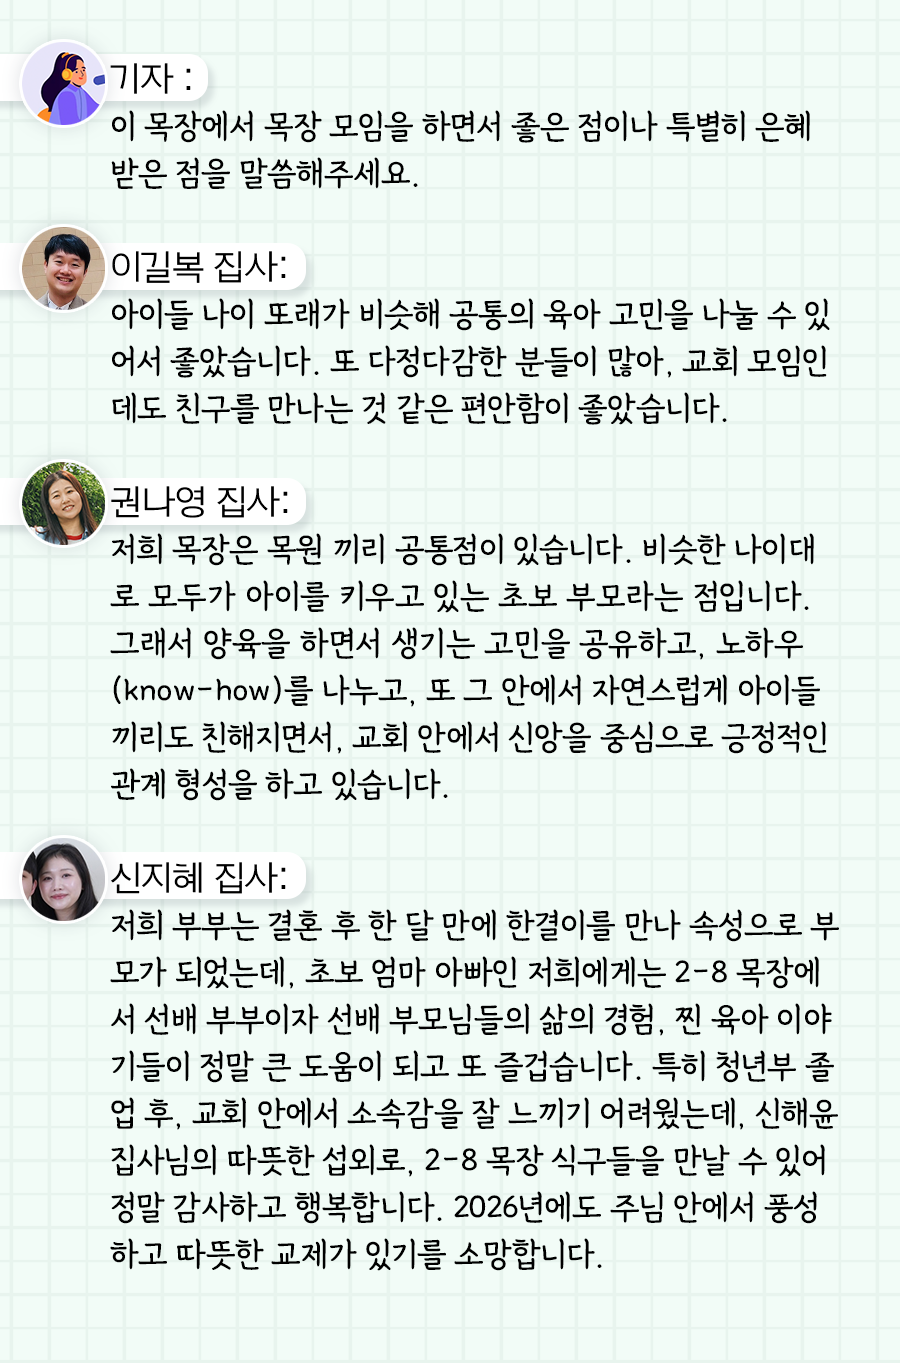 기자 :
이 목장에서 목장 모임을 하면서 좋은 점이나 특별히 은혜
받은 점을 말씀해주세요.
이길복 집사:
아이들 나이 또래가 비슷해 공통의 육아 고민을 나눌 수 있
어서 좋았습니다. 또 다정다감한 분들이 많아, 교회 모임인
데도 친구를 만나는 것 같은 편안함이 좋았습니다.
권나영 집사:
저희 목장은 목원 끼리 공통점이 있습니다. 비슷한 나이대
로 모두가 아이를 키우고 있는 초보 부모라는 점입니다.
그래서 양육을 하면서 생기는 고민을 공유하고, 노하우
(know-how)를 나누고, 또 그 안에서 자연스럽게 아이들
끼리도 친해지면서, 교회 안에서 신앙을 중심으로 긍정적인
관계 형성을 하고 있습니다.
신지혜 집사:
저희 부부는 결혼 후 한 달 만에 한결이를 만나 속성으로 부
모가 되었는데, 초보 엄마 아빠인 저희에게는 2-8 목장에
서 선배 부부이자 선배 부모님들의 삶의 경험, 찐 육아 이야
기들이 정말 큰 도움이 되고 또 즐겁습니다. 특히 청년부 졸
업 후, 교회 안에서 소속감을 잘 느끼기 어려웠는데, 신해윤
집사님의 따뜻한 섭외로, 2-8 목장 식구들을 만날 수 있어
정말 감사하고 행복합니다. 2026년에도 주님 안에서 풍성
하고 따뜻한 교제가 있기를 소망합니다.